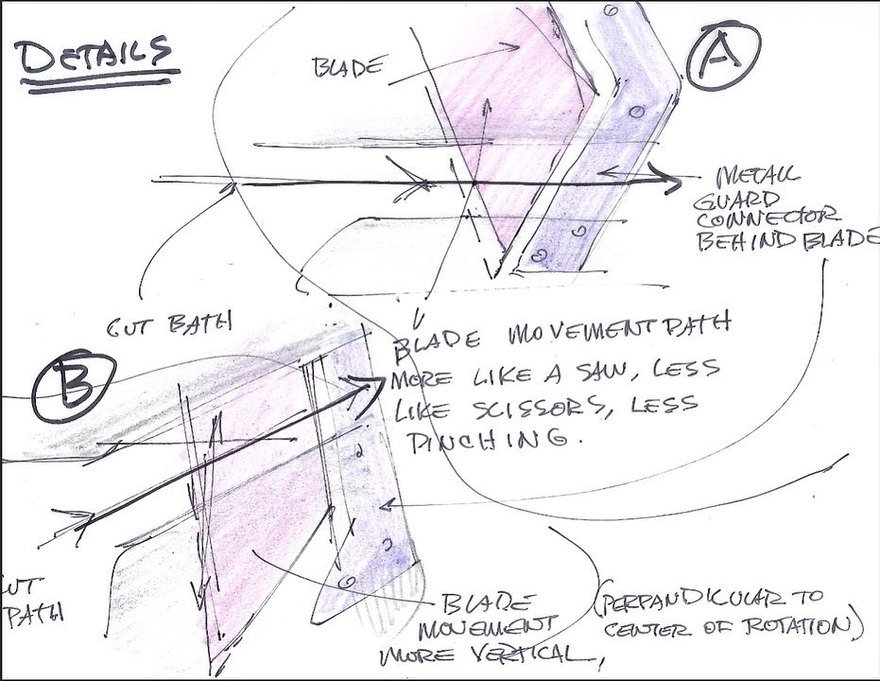 DETAILS
BLADE
A
METALL
GUARD
CONNECTOR
BEHIND BLADE
CUT BATH
BLADE MOVEMENT PATH
MORE LIKE A SAW, LESS
LIKE SCISSORS, LESS
PINCHING.
B
CUT
PATH
BLADE
MOVEMENT
MORE VERTICAL,
(PERPANDICULAR TO
CENTER OF ROTATION)